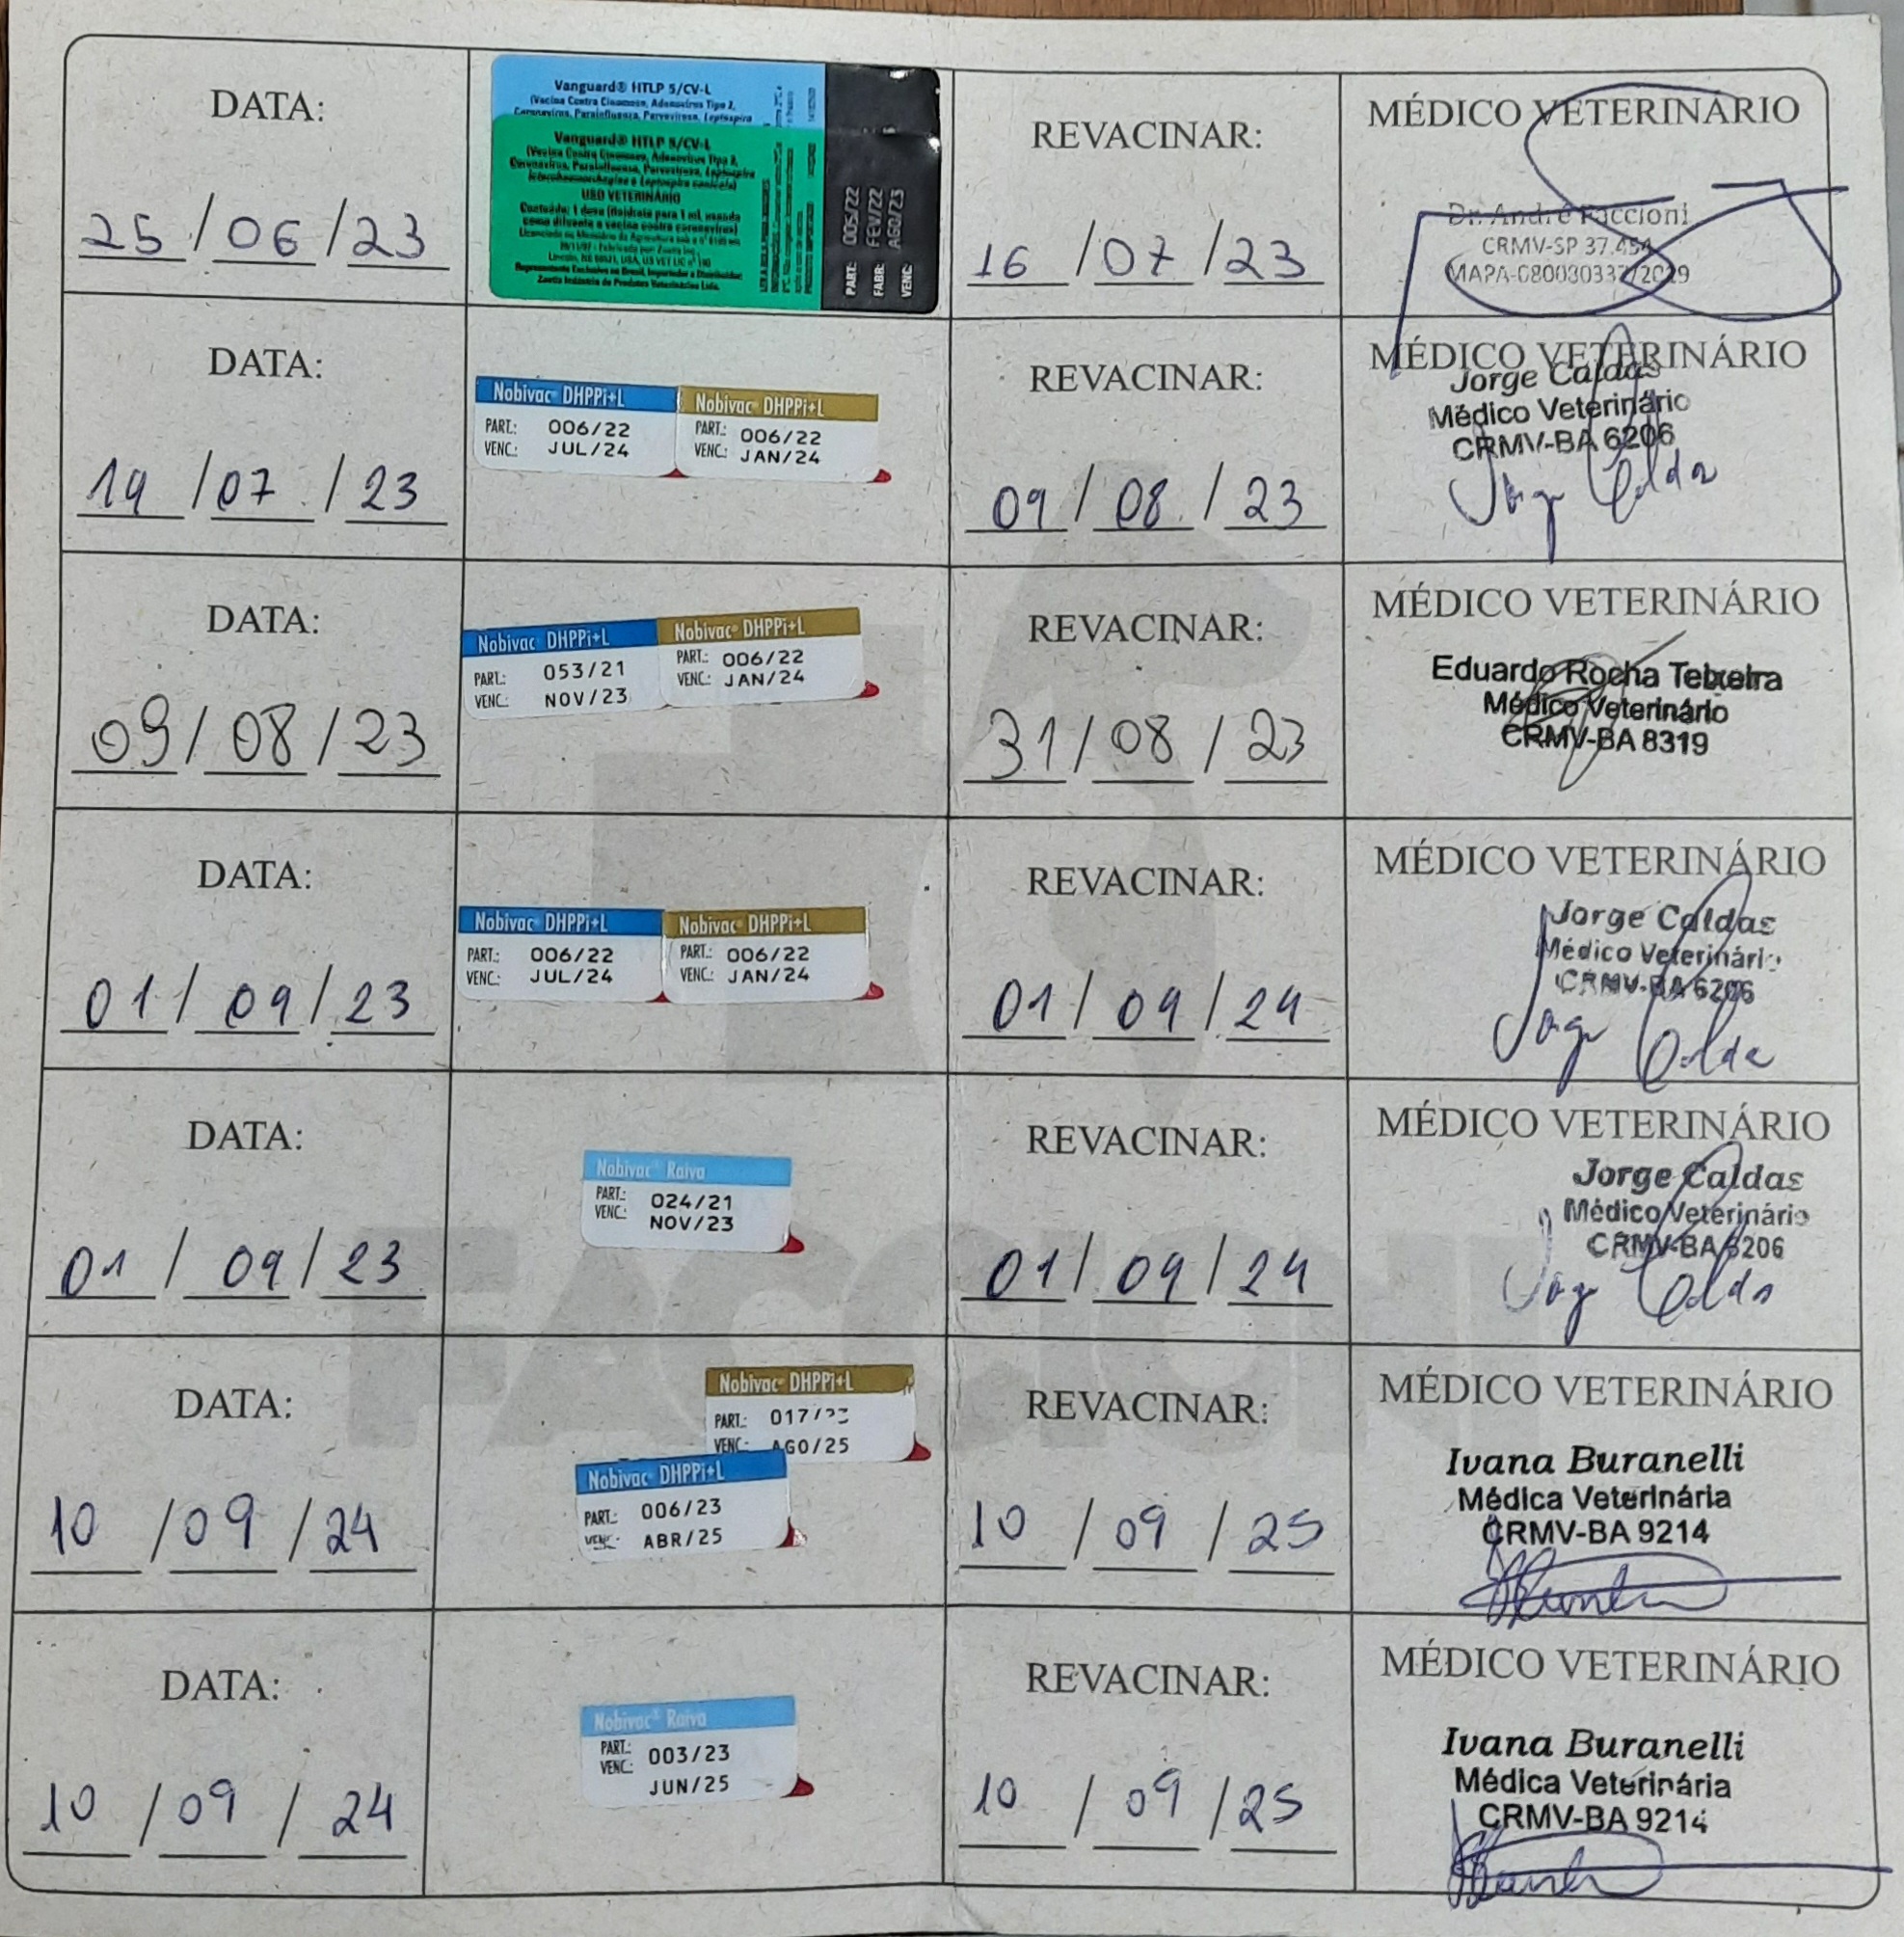 DATA:
25/06/23
Vanguard® HTLP 5/CV-L
(Vacina Contra Cinomose, Adenovírus Tipo 2,
Coronavírus, Parainfluenza, Parvovirose, Leptospira
Vanguard® HTLP 5/CV-L
(Vacina Contra Cinomose, Adenovírus Tipo 2,
Coronavírus, Parainfluenza, Parvovirose, Leptospira
icterohaemorrhagiae e Leptospira canicola)
USO VETERINÁRIO
Conteúdo: 1 dose (fluidrato para 1 mL usando
como diluente a vacina contra coronavírus)
PART: 005/22
FABR: FEV/22
VENC: AGO/23
REVACINAR:
16/07/23
MÉDICO VETERINÁRIO
Dr. André Faccioni
CRMV-SP 37.454
DATA:
19/07/23
Nobivac® DHPPi+L
PART.: 006/22
VENC.: JUL/24
Nobivac® DHPPi+L
PART.: 006/22
VENC.: JAN/24
REVACINAR:
09/08/23
MÉDICO VETERINÁRIO
Jorge Caldas
Médico Veterinário
CRMV-BA 6206
Jorge Caldas
DATA:
09/08/23
Nobivac® DHPPi+L
PART.: 053/21
VENC.: NOV/23
Nobivac® DHPPi+L
PART.: 006/22
VENC.: JAN/24
REVACINAR:
31/08/23
MÉDICO VETERINÁRIO
Eduardo Rocha Teixeira
Médico Veterinário
CRMV-BA 8319
DATA:
01/09/23
Nobivac® DHPPi+L
PART.: 006/22
VENC.: JUL/24
Nobivac® DHPPi+L
PART.: 006/22
VENC.: JAN/24
REVACINAR:
01/09/24
MÉDICO VETERINÁRIO
Jorge Caldas
Médico Veterinário
CRMV-BA 6206
Jorge Caldas
DATA:
01/09/23
Nobivac® Raiva
PART.: 024/21
VENC.: NOV/23
REVACINAR:
01/09/24
MÉDICO VETERINÁRIO
Jorge Caldas
Médico Veterinário
CRMV-BA 6206
Jorge Caldas
FACCIONI
DATA:
10/09/24
Nobivac® DHPPi+L
PART.: 017/23
VENC.: AGO/25
Nobivac® DHPPi+L
PART.: 006/23
VENC.: ABR/25
REVACINAR:
10/09/25
MÉDICO VETERINÁRIO
Ivana Buranelli
Médica Veterinária
CRMV-BA 9214
DATA:
10/09/24
Nobivac® Raiva
PART.: 003/23
VENC.: JUN/25
REVACINAR:
10/09/25
MÉDICO VETERINÁRIO
Ivana Buranelli
Médica Veterinária
CRMV-BA 9214